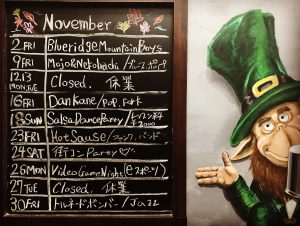 November
2 FRI Blueridge Mountain Boys
9 FRI Mojo & Nekohachi /
12.13 MON.TUE Closed. 休業
16 FRI Dan Kane / POP,
18 SUN Salsa Dance Party /
23 FRI Hot Sause / ファンク、バンド
24 SAT 街コン Party♡
26 MON Video Game Night (eスポーツ)
27 TUE Closed. 休業
30 FRI トルネードボンバー / Jazz